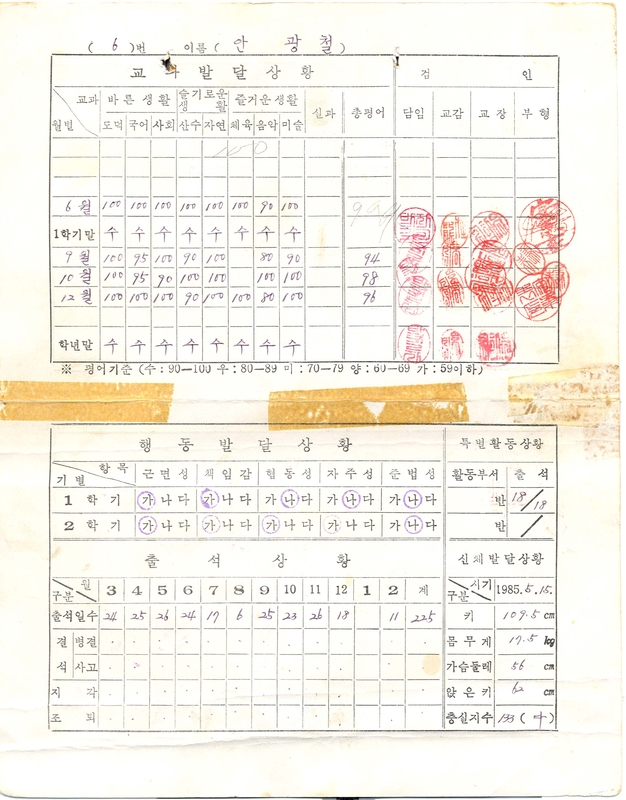 ( 6 )번 이름 ( 안 광 철 )
교 과 발 달 상 황 검 인
교과 바 른 생 활 슬기로운 생 활 즐거운 생활 신과 총평어 담임 교감 교 장 부 형
월별 도덕 국어 사회 산수 자연 체육 음악 미술
100
6 월 100 100 100 100 100 100 90 100
1학기말 수 수 수 수 수 수 수 수
9 월 100 95 100 90 100 80 90 94
10 월 100 95 90 100 100 100 100 98
12 월 100 100 100 90 100 100 80 100 96
학년말 수 수 수 수 수 수 수 수
※ 평어기준 (수 : 90—100 우 : 80—89 미 : 70—79 양 : 60—69 가 : 59이하)
행 동 발 달 상 황 특별활동상황
항 목 기 별 근 면 성 책 임 감 협 동 성 자 주 성 준 법 성 활동부서 출 석
1 학 기 가 나 다 가 나 다 가 나 다 가 나 다 가 나 다 반 18/18
2 학 기 가 나 다 가 나 다 가 나 다 가 나 다 가 나 다 반 /
출 석 상 황 신체발달상황
월 구분 3 4 5 6 7 8 9 10 11 12 1 2 계 시기 구분 1985. 5. 15.
출석일수 24 25 26 24 17 6 25 23 26 18 11 225 키 109.5 cm
결 석 병결 몸 무 게 17.5 kg
사고 가슴둘레 56 cm
지 각 앉 은 키 62 cm
조 퇴 충실지수 133 ( 中 )